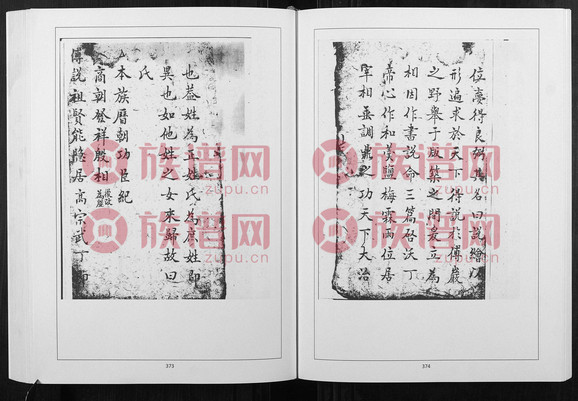 也蓋姓為正姓氏為庶姓即
異也如他姓之女來歸故曰
氏
本族曆朝功臣紀
商朝發祥殷相
傅說祖賢能隱居高宗武丁即
位夢得良弼其名曰說繪
形遍求於天下得說於傅巖
之野舉于版築之間爰立為
相因作書說命三篇啓沃丁
帝心作和羹鹽梅霖雨位居
宰相燮調鼎之功天下大治
族谱网
zupu.cn
族谱网
zupu.cn
族谱网
zupu.cn
族谱网
zupu.cn
373
374